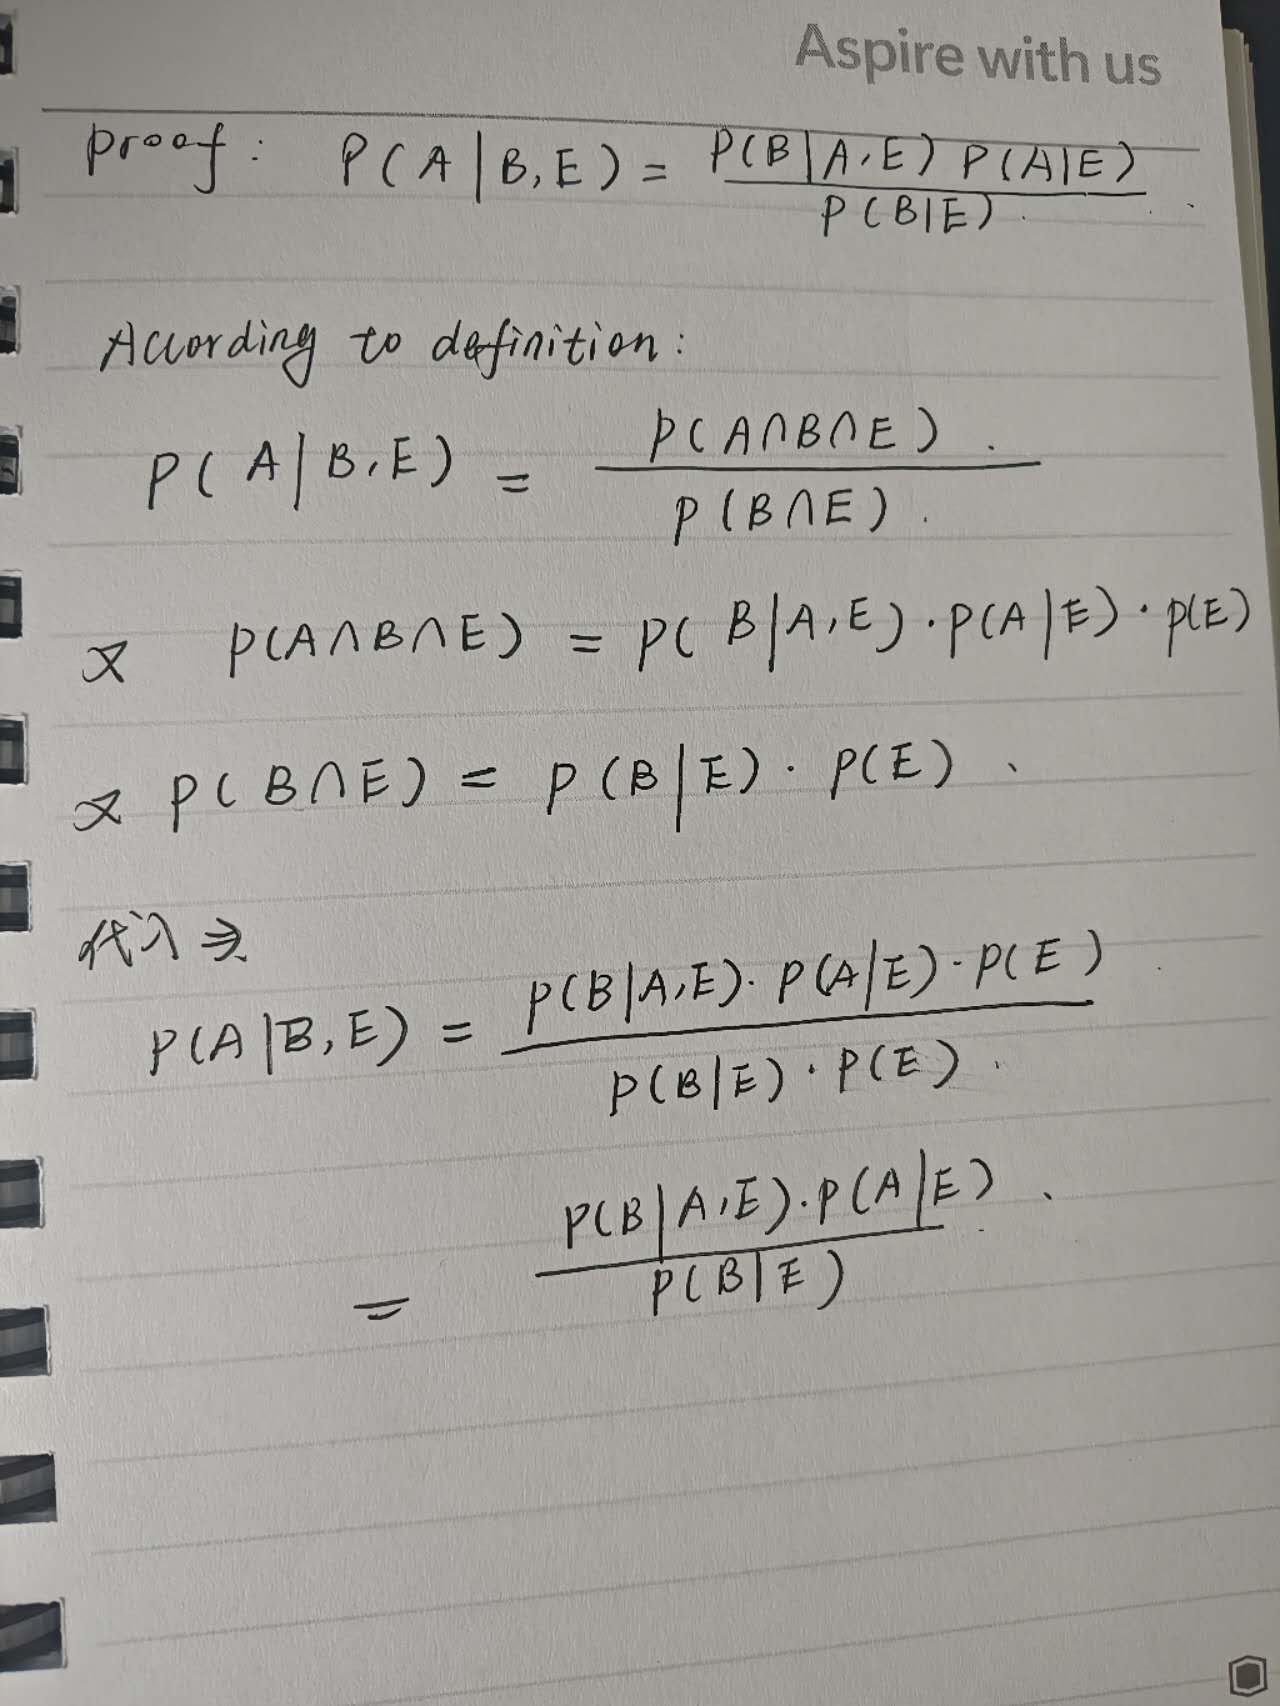 Aspire with us
proof: P(A|B,E) = P(B|A,E) P(A|E) / P(B|E)
According to definition:
P(A|B,E) = P(A∩B∩E) / P(B∩E).
又 P(A∩B∩E) = P(B|A,E)·P(A|E)·P(E)
又 P(B∩E) = P(B|E)·P(E).
代入⇒
P(A|B,E) = P(B|A,E)·P(A|E)·P(E) / P(B|E)·P(E).
= P(B|A,E)·P(A|E) / P(B|E)